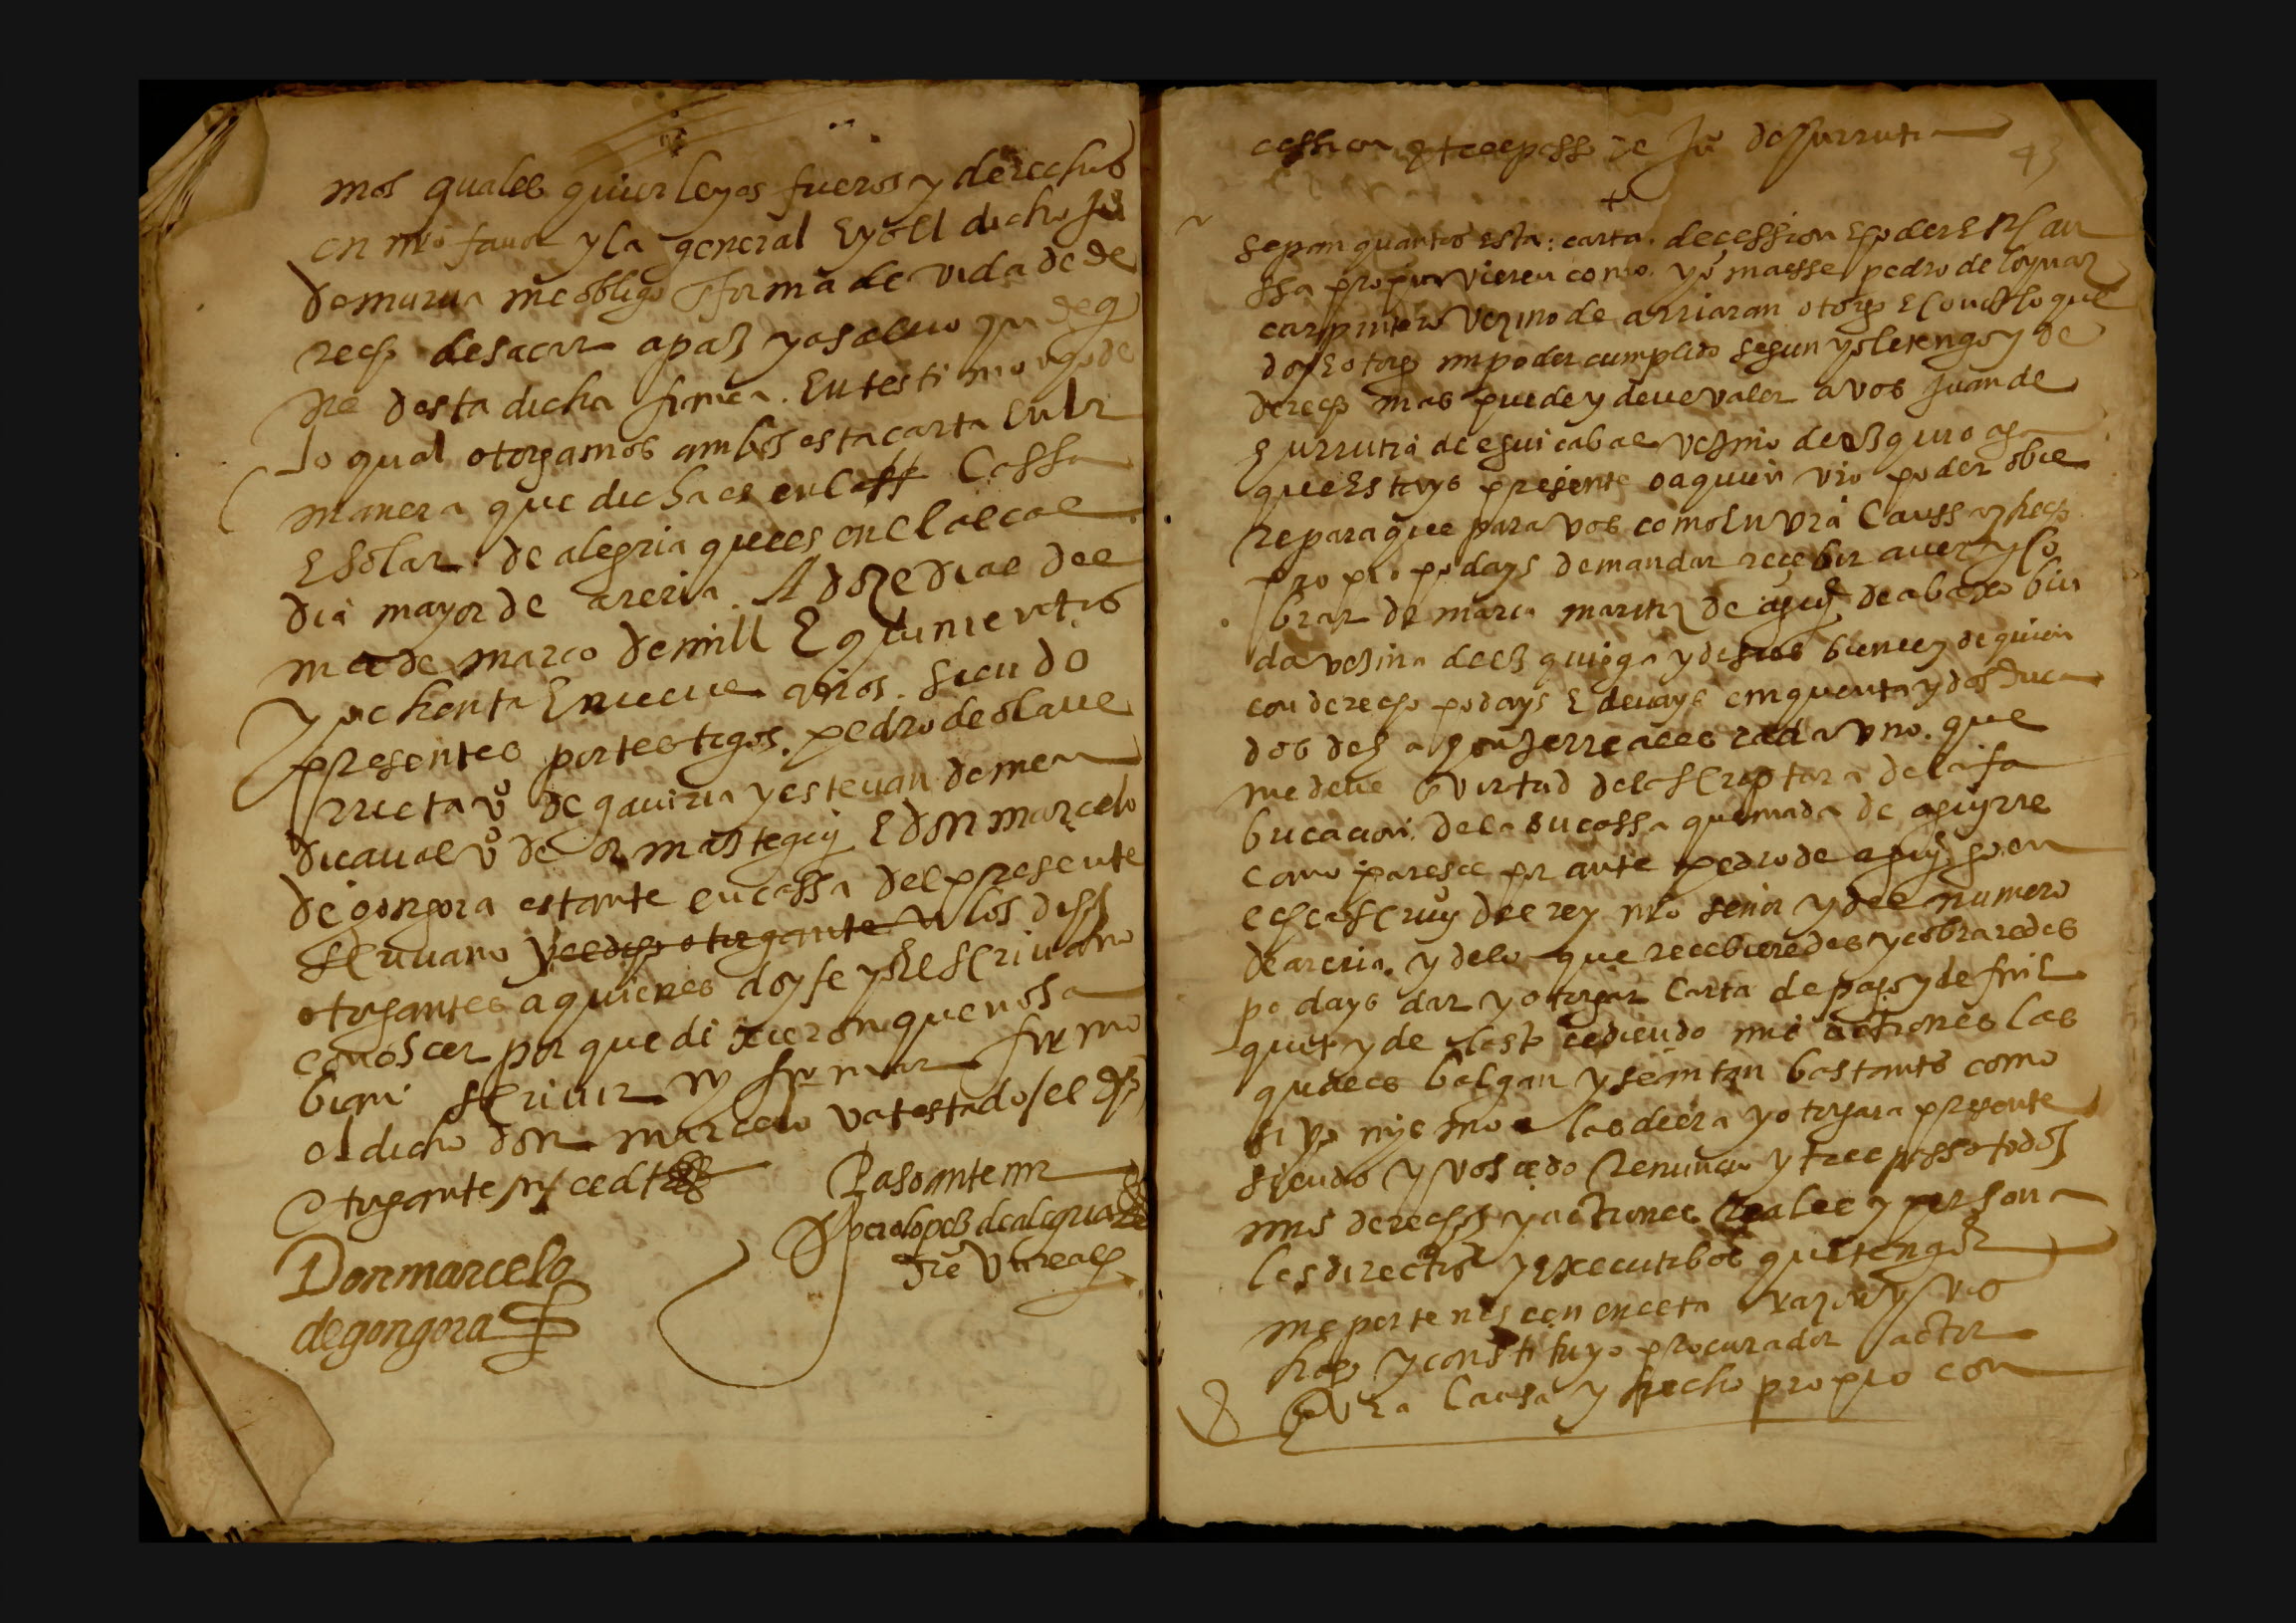 mos quales quier leyes fueros y derechos
en mio favor y la general E yo el dicho Ju
de murua me obligo forma de vida de de
recho de sacar a paz y a salvo
desta dicha firma. En testimonyo de
lo qual otorgamos ambos esta carta en la
manera que dicha es en la Cassa
E solar de alegria que es en el alcal
dia mayor de areria. A doze dias del
mes de março de mill E quinientos
y ochenta E nueve años. siendo
presentes por testigos. pedro de olave
rrieta vº de gaviria y estevan de men
dicaval vº de ormaztegui E don marcelo
de gongora estante en cassa del presente
scrivano y el dicho otorgante los dichos
otorgantes a quienes doy fe yo el scrivano
conoscer por que dixieron que no sa
bian scrivir ny firmar firmo
el dicho don marcelo va testado / el dicho
otorgante
Paso ante mi
pero lopez de alegria
Don marcelo
de gongora
cession E treepasso de Juº de Surrutia
43
Sepan quantos esta carta. de cession E poder En cau
ssa propia vieren como. yo maesse pedro de loynaz
carpintero vezino de arriaran otorgo E conosco que
doy E otorgo mi poder cumplido segun yo le tengo y de
derecho mas puede y deve valer a vos Juan de
Surrutia de eguicabal vezino de ezquioga
que Estays presente o a quien vro poder obie
re para que para vos como En vra Caussa y hecho
propio podays demandar recebir aver y co
brar de maria martinz de de abaxo biu
da vezina de ezquioga y de sus bienes y de quien
con derecho podays E devays cinquenta y dos duca
dos de a honze rreales cada uno. que
me deve virtud de la scriptura de la fa
bricacion. de la su cassa quemada de aguyrre
como paresce por ante pedro de
scrivº del rey nro señor y del numero
de areria. y de lo que recebieredes y cobraredes
podays dar y otorgar Carta de pago y de fin E
quito y de lasto cediendo mis actiones las
quales balgan y sean tan bastante como
si yo mysmo las diera y otorgara presente
siendo y vos cedo Renuncio y treepasso todos
mis derechos y actiones Reales y persona
les directos y executibos que tengo E
me pertenescen en esta razon y vos
hago y constituyo procurador actor
En vra Causa y hecho propio con